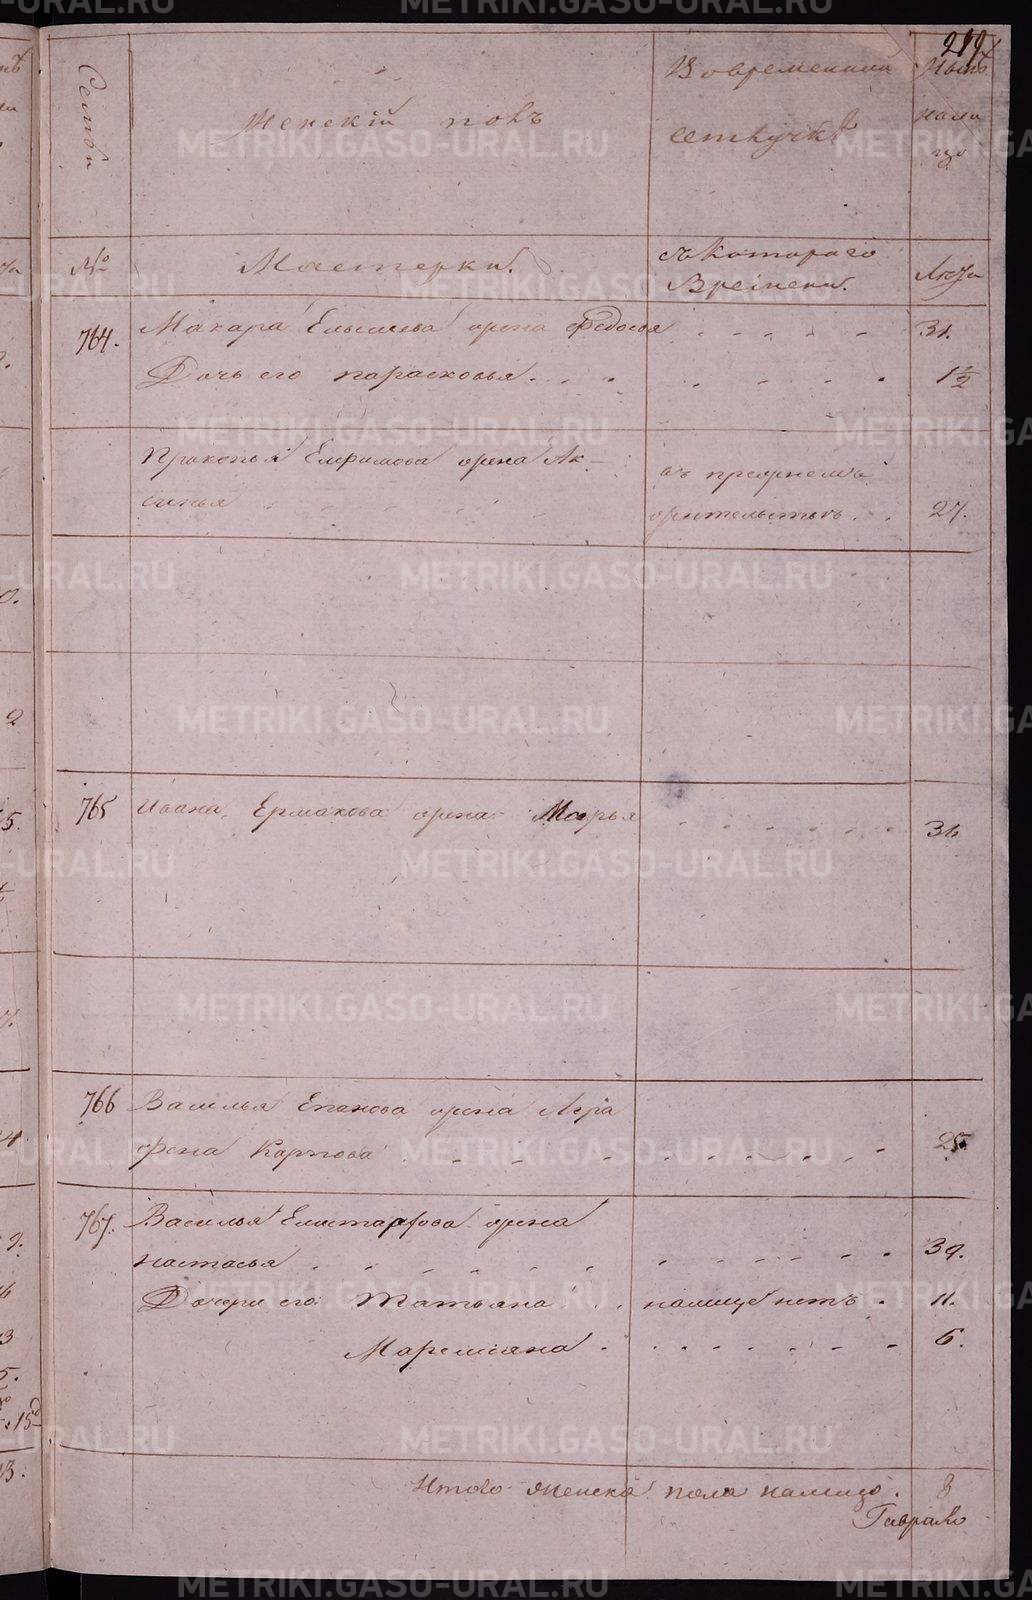 219
Семьи
Женскій полъ
Во временной
отлучкѣ
Нынѣ
нали
цо
№
Мастерки.
съ котораго
Времени.
Лѣта
764. Макара Елисеева жена Федосья 31.
Дочь его Парасковья 1½
Прокопья Ефимова жена Ак-
синья
въ прежнемъ
жительствѣ 27.
765 Ивана Ермакова жена Марья 31
766 Василья Епанова жена Агра
фена Карпова 25.
767. Василья Елистарова жена
Настасья 39.
Дочери его: Татьяна налицо нетъ 11.
Маремьяна 6.
Итого женска пола налицо. 8
METRIKI.GASO-URAL.RU